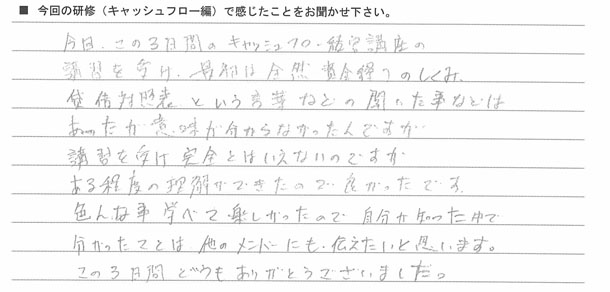 ■ 今回の研修（キャッシュフロー編）で感じたことをお聞かせ下さい。
今日、この3日間のキャッシュフロ・経営講座の
講習を受け、最初は全然資金繰りのしくみ、
貸借対照表という言葉などの聞いた事などは
あったが意味が分からなかったんですが
講習を受け完全とはいえないのですが
ある程度の理解ができたので良かったです。
色んな事学べて楽しかったので自分が知った中で
分かったことは、他のメンバーにも伝えたいと思います。
この3日間どうもありがとうございました。